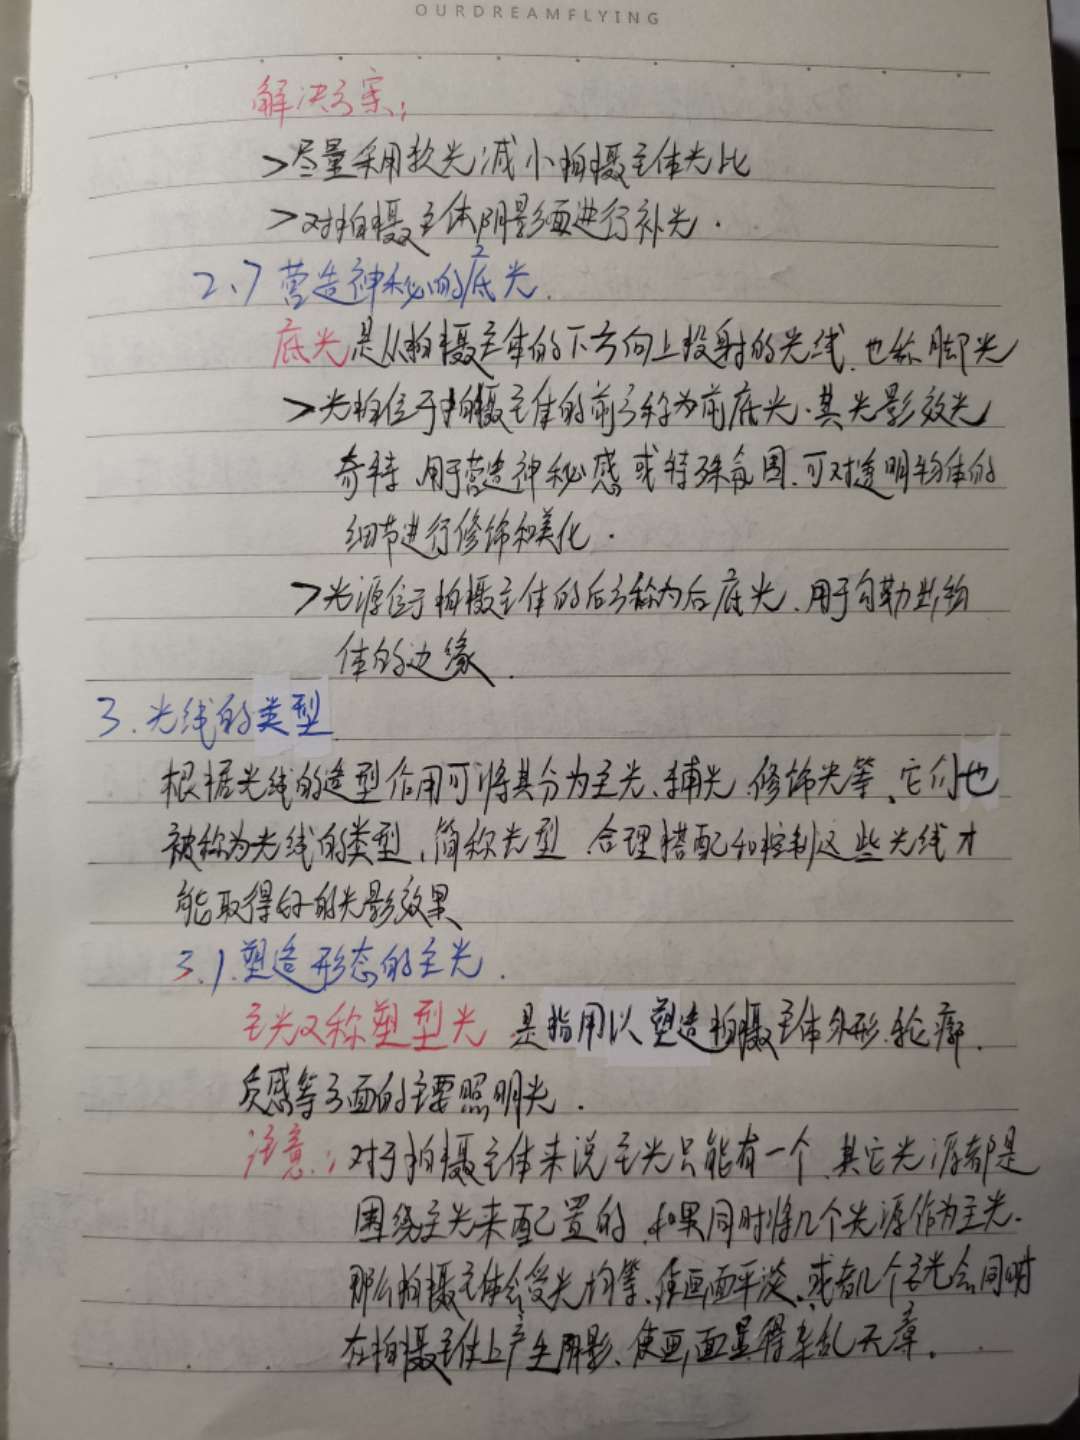 OURDREAMFLYING
解决方案：
>尽量采用软光减小拍摄主体光比
>对拍摄主体阴影面进行补光.
2、7 营造神秘的底光.
底光是从拍摄主体的下方向上投射的光线、也称脚光
>光拍位于拍摄主体的前方称为前底光.其光影效光
奇特、用于营造神秘感或特殊氛围、可对透明物体的
细节进行修饰和美化.
>光源位于拍摄主体的后方称为后底光、用于勾勒出物
体的边缘.
3.光线的类型
根据光线的造型作用可将其分为主光、辅光、修饰光等、它们也
被称为光线的类型、简称光型 合理搭配和控制这些光线才
能取得好的光影效果
3.1.塑造形态的主光.
主光又称塑型光 是指用以塑造拍摄主体外形、轮廓、
质感等方面的主要照明光.
注意：对于拍摄主体来说主光只能有一个、其它光源都是
围绕主光来配置的、如果同时将几个光源作为主光.
那么拍摄主体会受光均等、使画面平淡、或者几个主光会同时
在拍摄主体上产生阴影、使画面显得杂乱无章.